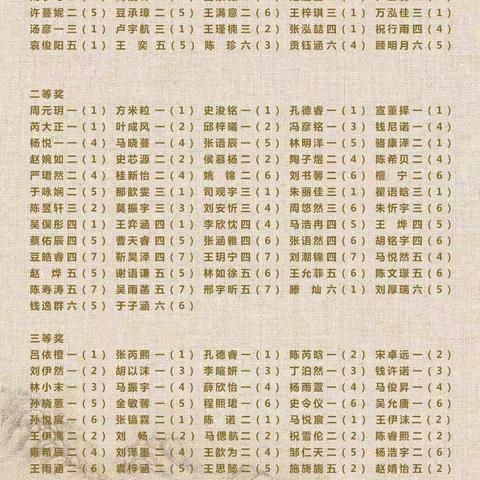 许蔓妮二(5) 豆承璋二(5) 王满意二(6) 王梓琪三(1) 万泓佳三(1)
汤彦一三(1) 卢宇航三(1) 王瑾楠三(2) 张泓喆四(1) 祝行雨四(4)
袁俊阳五(1) 王奕五(5) 陈珍六(3) 贡钰涵六(4) 顾明月六(5)
二等奖
周元玥一(1) 方米粒一(1) 史浚铭一(1) 孔德睿一(1) 宣董择一(1)
芮大正一(1) 叶成风一(2) 邱梓曦一(2) 冯彦铭一(3) 钱尼诺一(4)
杨悦一一(4) 马晓蔓一(4) 张语辰一(5) 林明洋一(5) 骆康泽二(1)
赵婉如二(1) 史芯源二(2) 侯慕杨二(2) 陶子煜二(4) 陈希贝二(4)
严珺然二(4) 桂新怡二(4) 姚锦二(6) 刘书馨二(6) 檀宁二(6)
于咏娴二(5) 那歆雯三(1) 司观宇三(1) 朱丽佳三(1) 翟语晗三(1)
陈昱轩三(2) 莫振宇三(3) 刘安忻三(4) 周悠然三(6) 朱忻宇三(6)
吴俣彤四(1) 王弈涵四(1) 李欣忱四(4) 马浩冉四(5) 王烨四(5)
蔡佑辰四(5) 曹天睿四(5) 张涵雅四(6) 张语然四(6) 胡铭宇四(6)
豆皓睿四(7) 靳昊泽四(7) 王玥宁四(7) 刘潮锦四(7) 马悦然五(4)
赵烨五(5) 谢语谦五(5) 林如徐五(6) 王允菲五(6) 陈文璟五(6)
陈寿涛五(7) 吴雨菡五(7) 邢宇昕五(7) 滕灿六(1) 刘厚瑞六(5)
钱逸群六(5) 于子涵六(6)
三等奖
吕依橙一(1) 张芮熙一(1) 孔德睿一(1) 陈芮晗一(2) 宋卓远一(2)
刘伊然一(2) 胡以沫一(3) 李暄妍一(3) 丁泊然一(3) 钱许诺一(3)
林小末一(3) 马振宇一(4) 薛欣怡一(4) 杨雨萱一(4) 马俊昇一(4)
孙晓蒽一(5) 金敏馨一(5) 程熙珺一(6) 史令仪一(6) 吴允唐一(6)
孙悦宸一(6) 张镐霖二(1) 陈诺二(1) 马悦宸二(1) 王伊沫二(2)
王伊澫二(2) 刘畅二(2) 马偲航二(2) 祝雪伦二(2) 陈睿熙二(2)
雍希辰二(4) 刘泽墨二(4) 王歆为二(4) 邹仁天二(5) 杨浩宇二(6)
王雨涵二(6) 袁梓涵二(5) 王思懿二(5) 施旖旎五(2) 赵婧怡五(2)